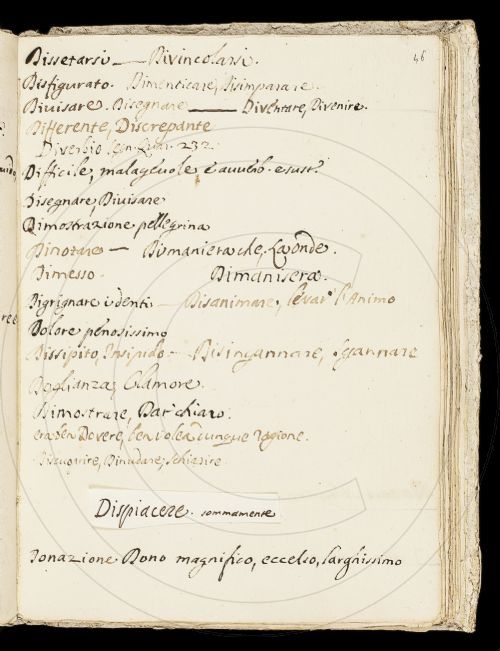 46
Dissetarsi — Divincolarsi.
Disfigurato. Dimenticare, Disimparare.
Divisare. Disegnare — Diventare, Divenire.
Differente, Discrepante
Diverbio 232.
Difficile, malagevole
Disegnare, Divisare
Dimostrazione pellegrina
Dinotare — Di maniera che, Laonde.
Dimesso. Di maniera.
Digrignare i denti — Disanimare, levar l'Animo
Dolore penosissimo
Dissipito, Insipido — Disingannare, Sgannare
Doglianza, Clamore.
Dimostrare, Dar chiaro.
Dovere, Ragione.
Discuoprire, Dinudare, Schiarire.
Dispiacere. sommamente
Donazione Dono magnifico, eccelso, larghissimo